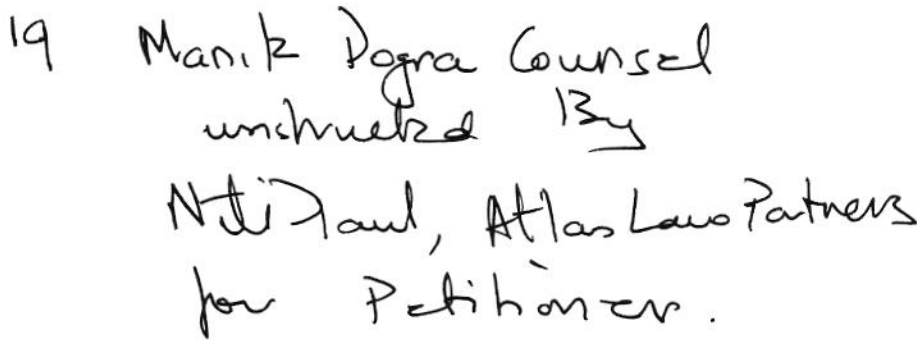 19 Manik Dogra Counsel
instructed By
Niti Paul, Atlas Law Partners
for Petitioner.